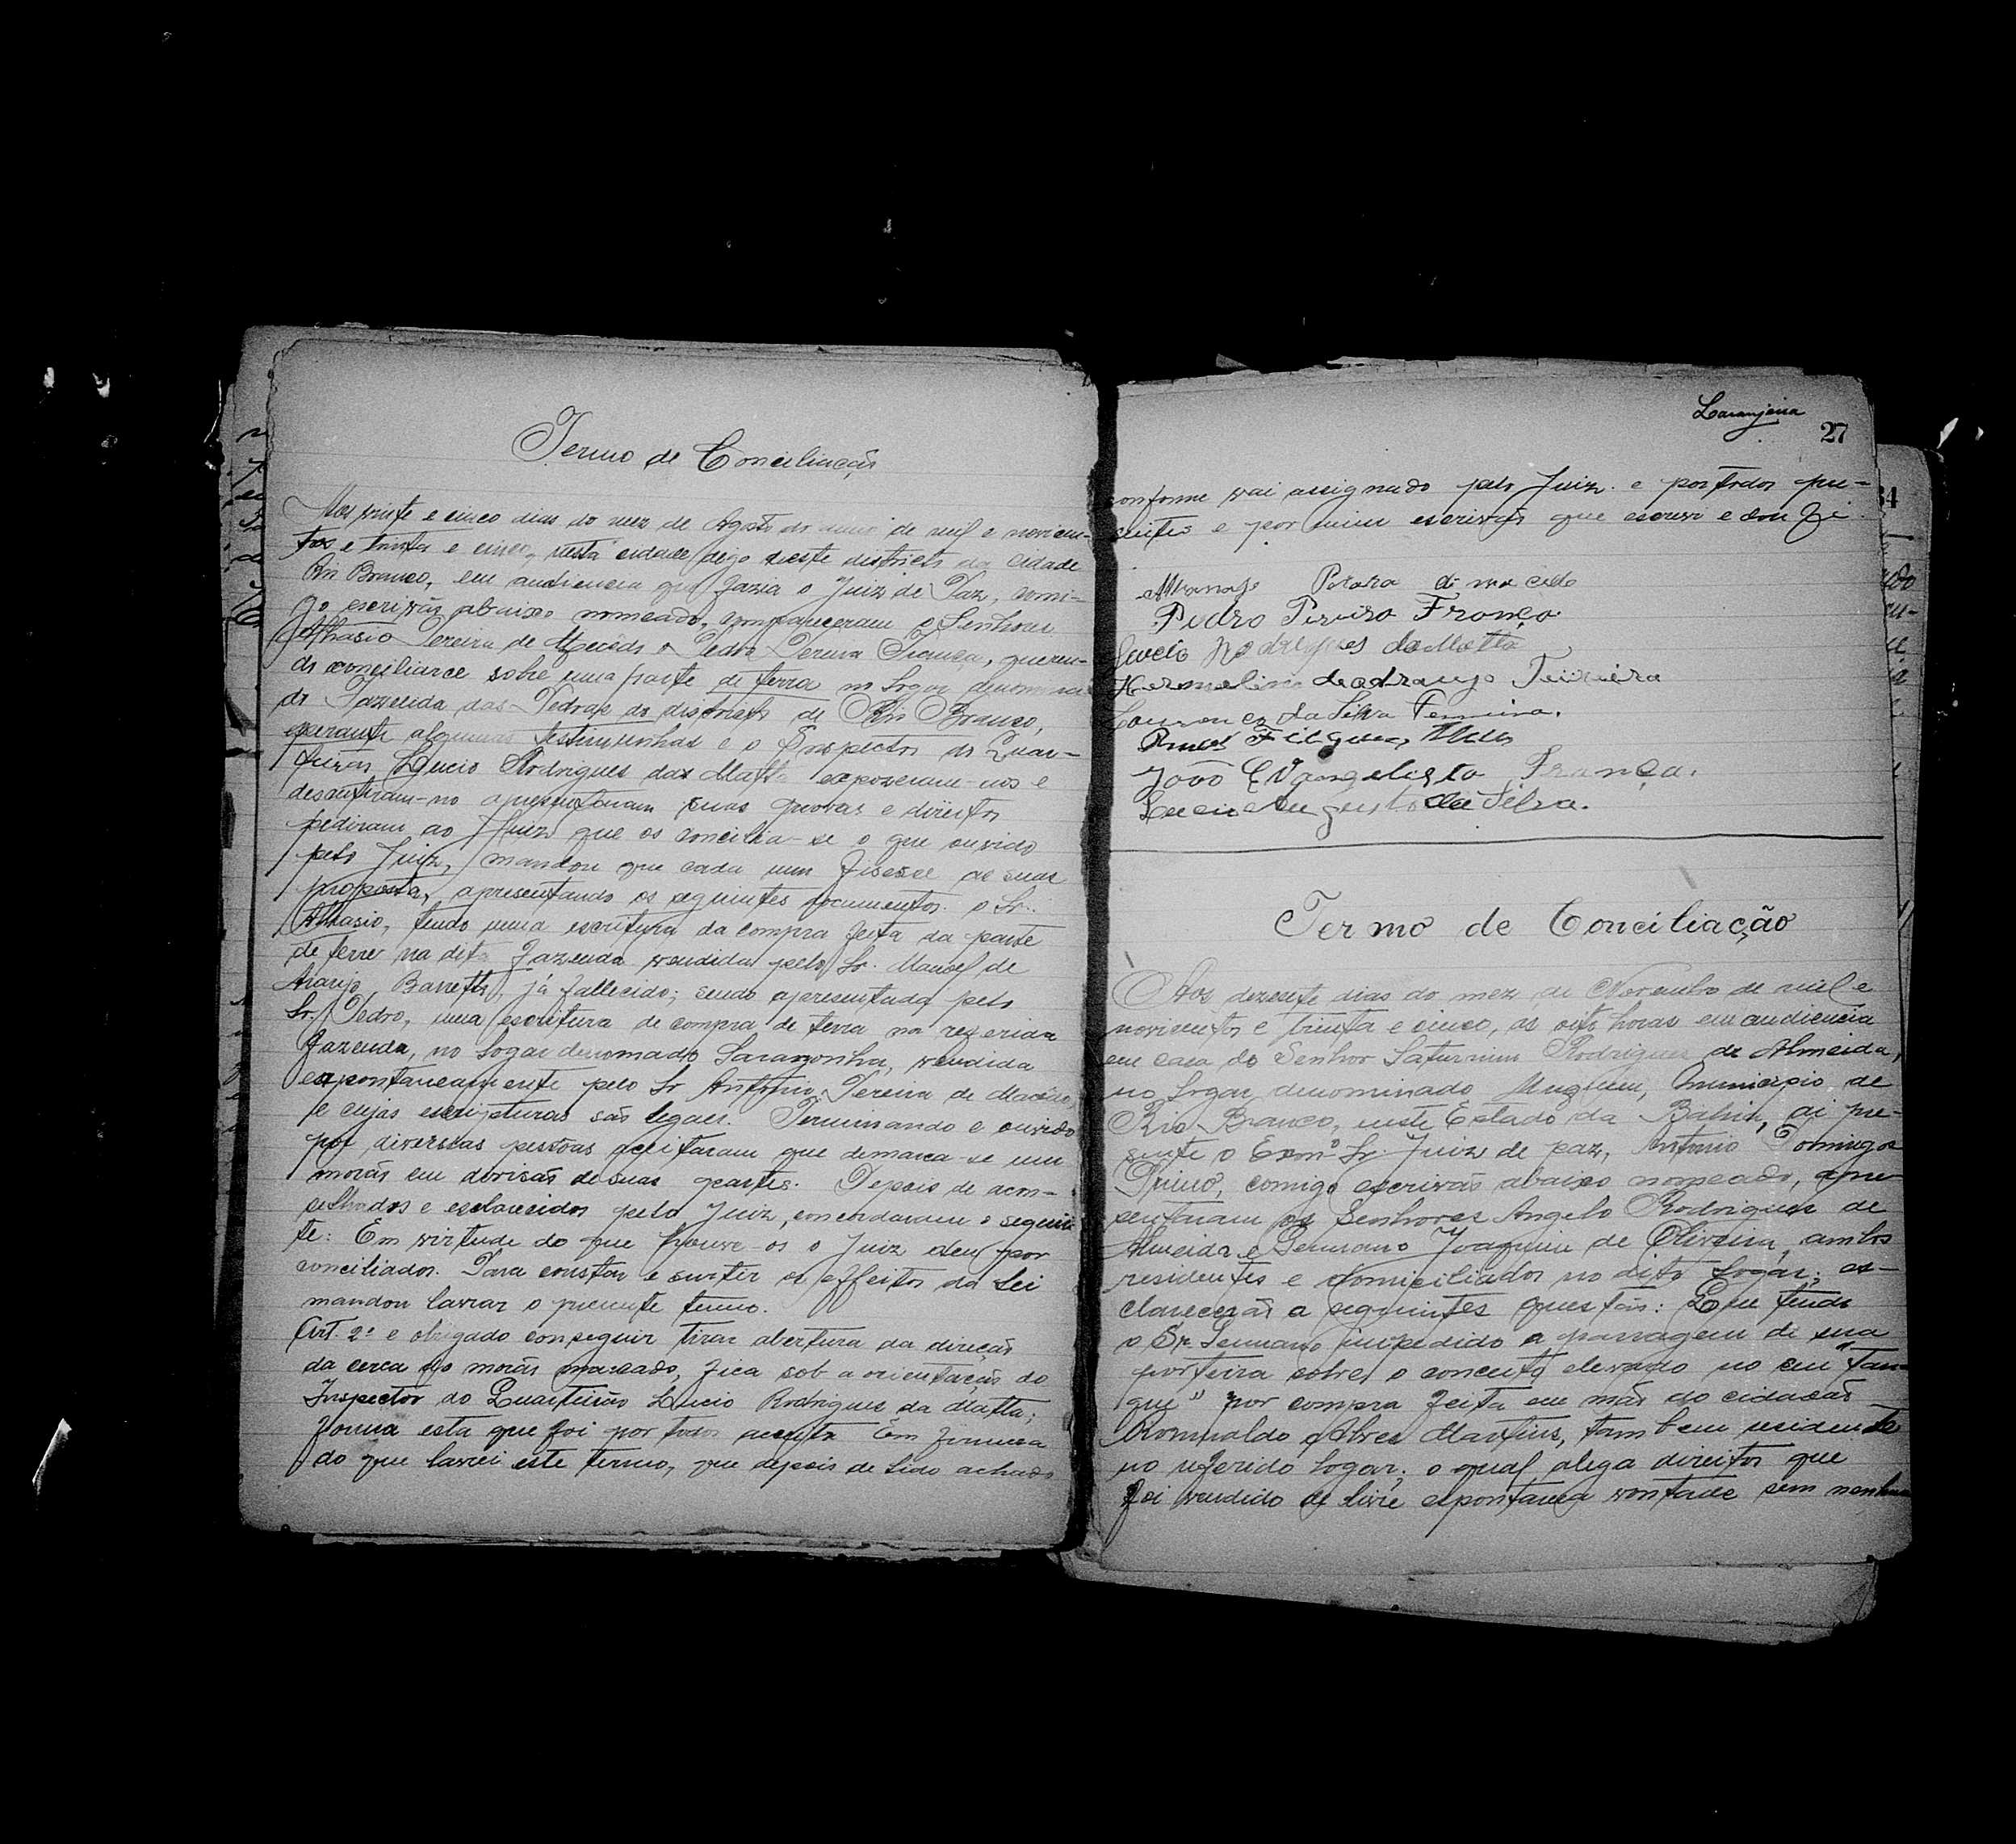 Termo de Conciliação
Aos vinte e cinco dias do mez de Agosto do anno de mil e novicen-
tos e trinta e cinco, nesta cidade digo neste districto da cidade
Rio Branco, em audiencia que fazia o Juiz de Paz, comi-
go escrivão abaixo nomeado, compareceram o Senhores
Athasio Pereira de Macêdo e Pedro Pereira França, queren-
do conciliarce sobre uma parte de terra no Logar denomina
do Fazenda das Pedras do districto de Rio Branco,
perante algumas testimunhas e o Inspector do Quar-
teirão Lucio Rodrigues das Matta expozeram-nos e
descutiram-no apresentaram suas provas e direitos
pediram ao Juiz que os concilia-se o que ouvido
pelo Juiz, mandou que cada um fisesse as suas
proposta, apresentando os seguintes documentos. o Sr.
Athasio, tendo uma escritura da compra feita da parte
de terre na dita Fazenda vendida pelo Sr. Manoel de
Araujo Barretto, já fallecido; sendo apresentada pelo
Sr. Pedro, uma escritura de compra de terra na referida
fazenda, no Logar denomado vendida
expontaneamente pelo Sr Antonio Pereira de Macêdo,
e cujas escripturas são legaes. Terminando e ouvido
por diverscas pessoas aceitaram que demarca-se um
morão em divisão de suas partes. Depois de acon-
selhados e esclarecidos pelo Juiz, concordaram o seguin
te: Em virtude do que houve-os o Juiz deu por
conciliados. Para constar e surtir os effeitos da Lei
mandou lavrar o presente termo.
Art. 2º e obrigado conseguir tirar abertura da direção
da cerca no morão marcado, fica sob a orientação do
Inspector do Quarteirão Lucio Rodrigues da Matta;
forma esta que foi por todos aceita Em firmesa
do que lavrei este termo, que depois de lido achado
Laranjeira
27
conforme vai assignado pelo Juiz e por todos pre-
sentes e por mim escrivão que escrevi e dou fé.
Pereira de macedo
Pedro Pereira França
Lucio Rodrigues da Matta
Hermelino de Araujo Teixeira
Lourenço da Silva Ferreira.
João Evangelista França.
Lucio Augusto da Silva.
Termo de Conciliação
Aos dezesete dias do mez de Novembro de mil e
novicentos e trinta e cinco, as oito horas em audiencia
em casa do Senhor Saturnino Rodrigues de Almeida,
no Logar denominado municipio de
Rio Branco, neste Estado da Bahia, ai pre-
sente o Exmº Sr. Juiz de paz, Antonio Domingos
Primo, comigo escrivão abaixo nomeado, apre
sentaram os Senhores Angelo Rodrigues de
Almeida e Germano Joaquim de Oliveira, ambos
residentes e domiciliados no dito Logar; es-
clareceräo a seguintes questão: Que tendo
o Sr. Germano impedido a passagem de sua
porteira sobre o conceito elevado no seu "tan-
que" por compra feita em mão do cidadão
Romualdo Alves Martins, tambem residente
no referido Logar; o qual alega direitos que
foi vendido de livre espontanea vontade sem nenhum